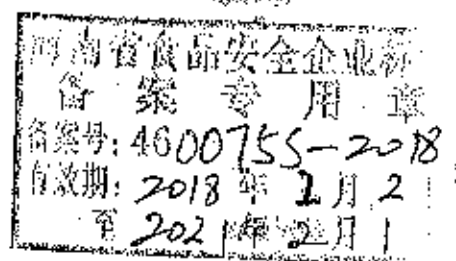 海南省食品安全企业标
备案专用章
备案号:4600755-2018
有效期:2018年2月2
至2021年2月1